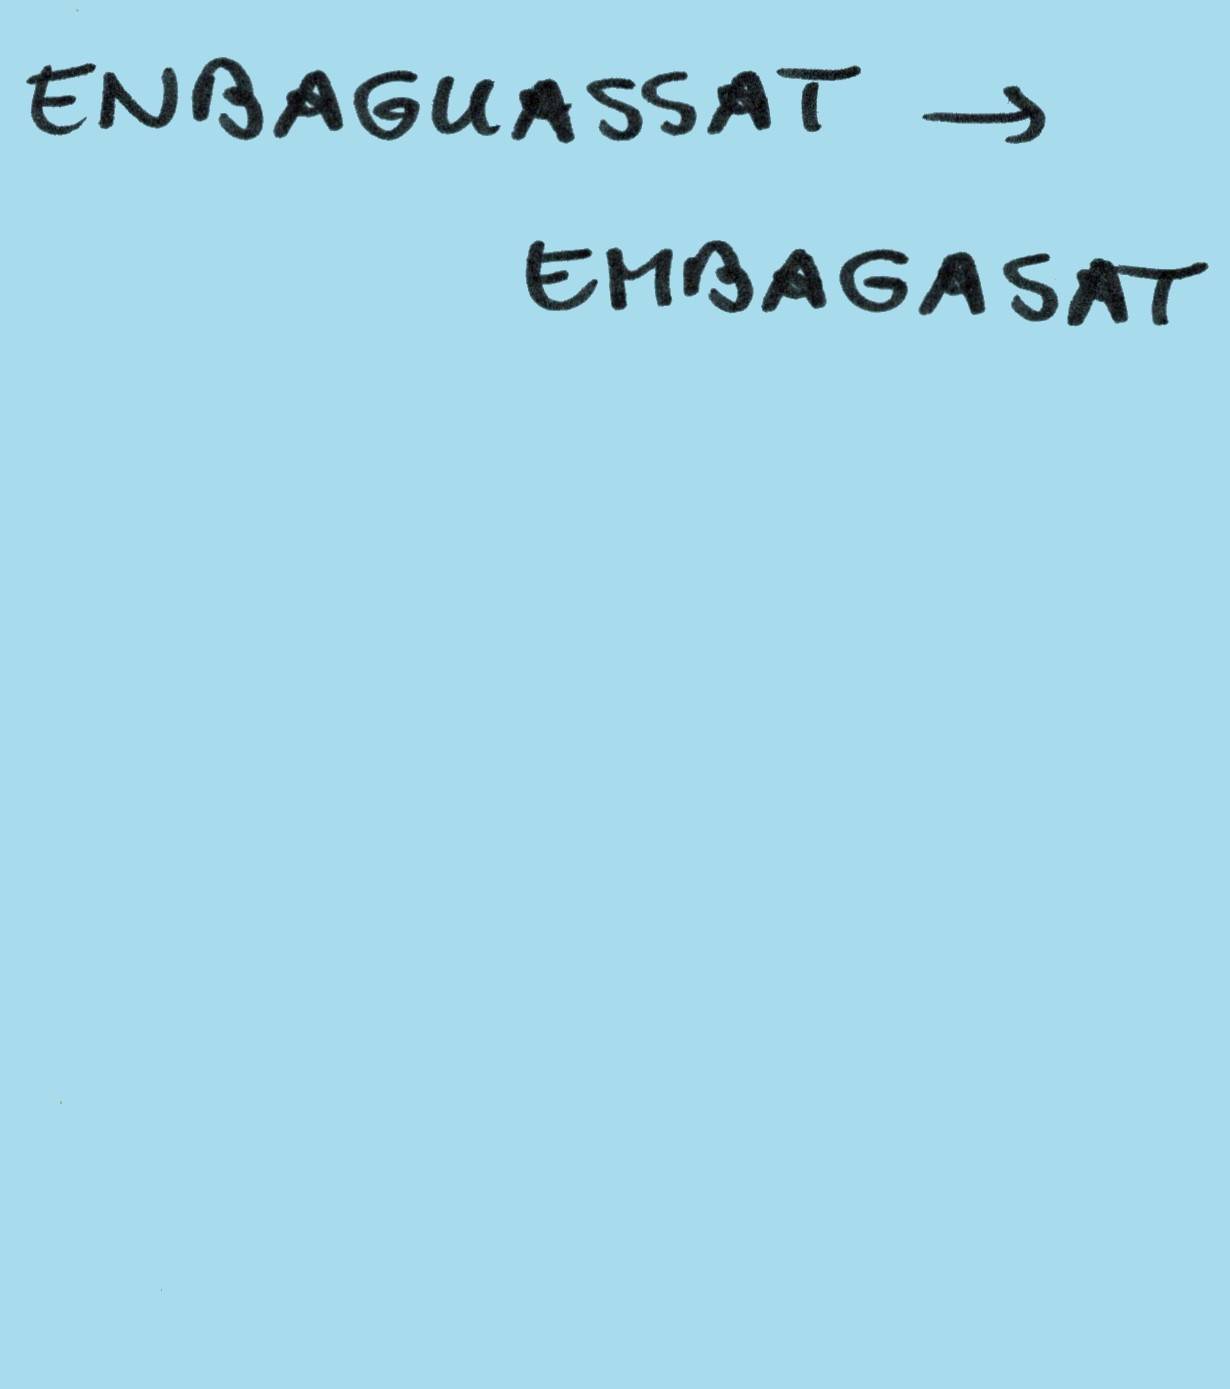 ENBAGUASSAT →
EMBAGASAT